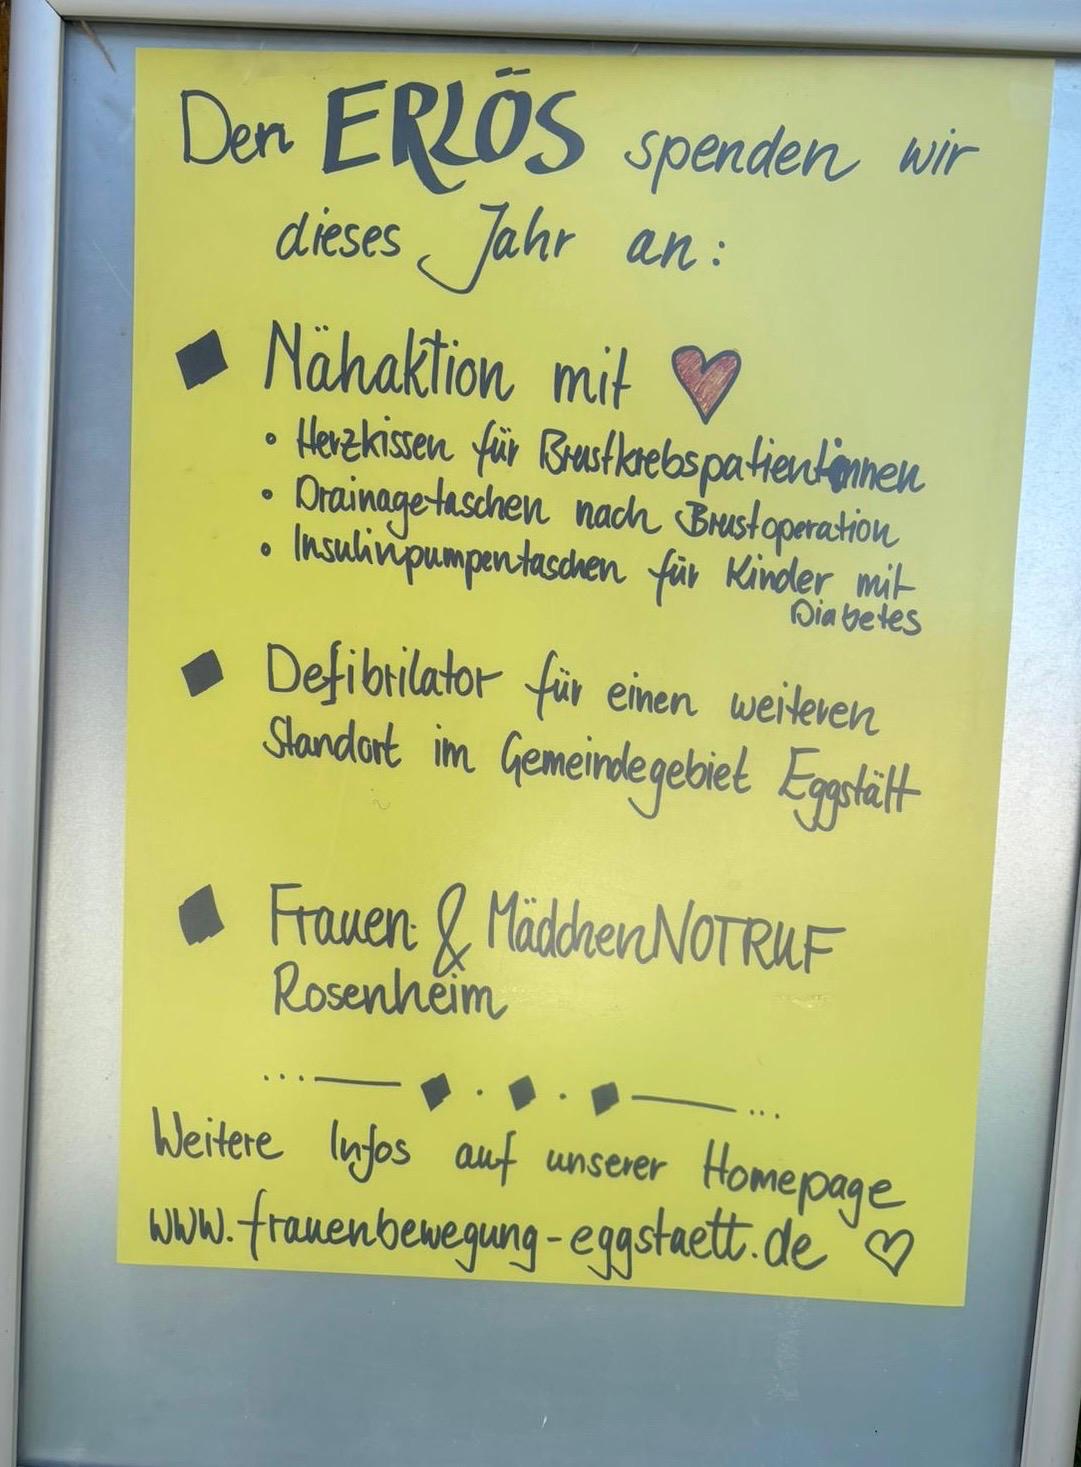 Den ERLÖS spenden wir
dieses Jahr an:
Nähaktion mit ♥
• Herzkissen für Brustkrebspatientinnen
• Drainagetaschen nach Brustoperation
• Insulinpumpentaschen für Kinder mit
Diabetes
Defibrilator für einen weiteren
Standort im Gemeindegebiet Eggstätt
Frauen & MädchenNOTRUF
Rosenheim
Weitere Infos auf unserer Homepage
www.frauenbewegung-eggstaett.de ♡